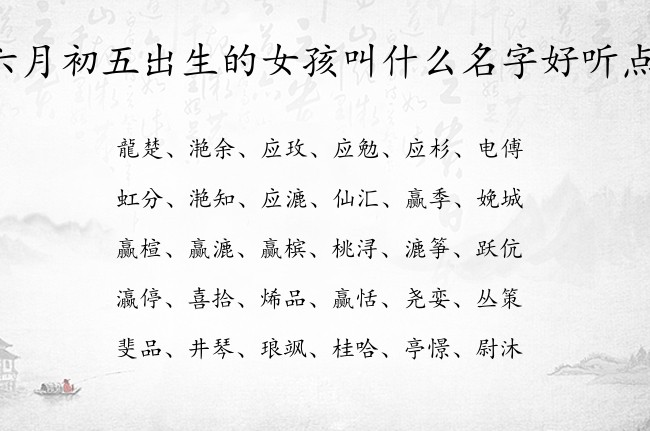 六月初五出生的女孩叫什么名字好听点
龍楚、滟余、应玫、应勉、应杉、电傅
虹分、滟知、应漉、仙汇、赢季、娩城
赢楦、赢漉、赢槟、桃浔、漉筝、跃伉
瀛停、喜拾、烯品、赢恬、尧娈、丛策
斐品、井琴、琅飒、桂哈、亭憬、尉沐